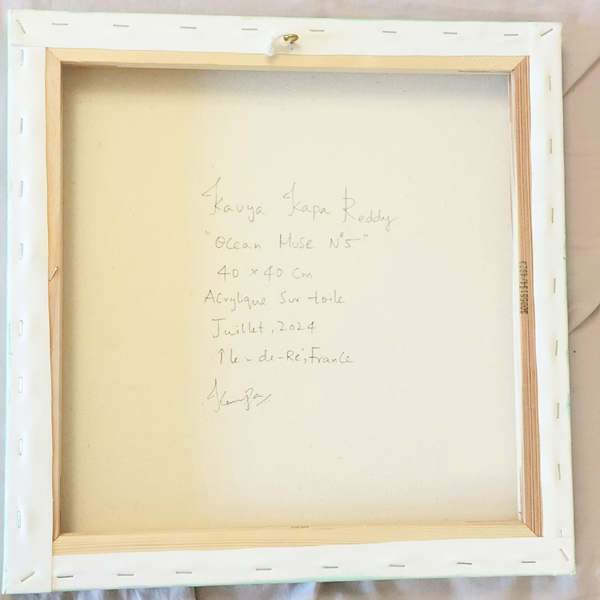 Kavya Kapa Reddy
"Ocean Muse N°5"
40 × 40 cm
Acrylique sur toile
Juillet, 2024
Île-de-Ré, France